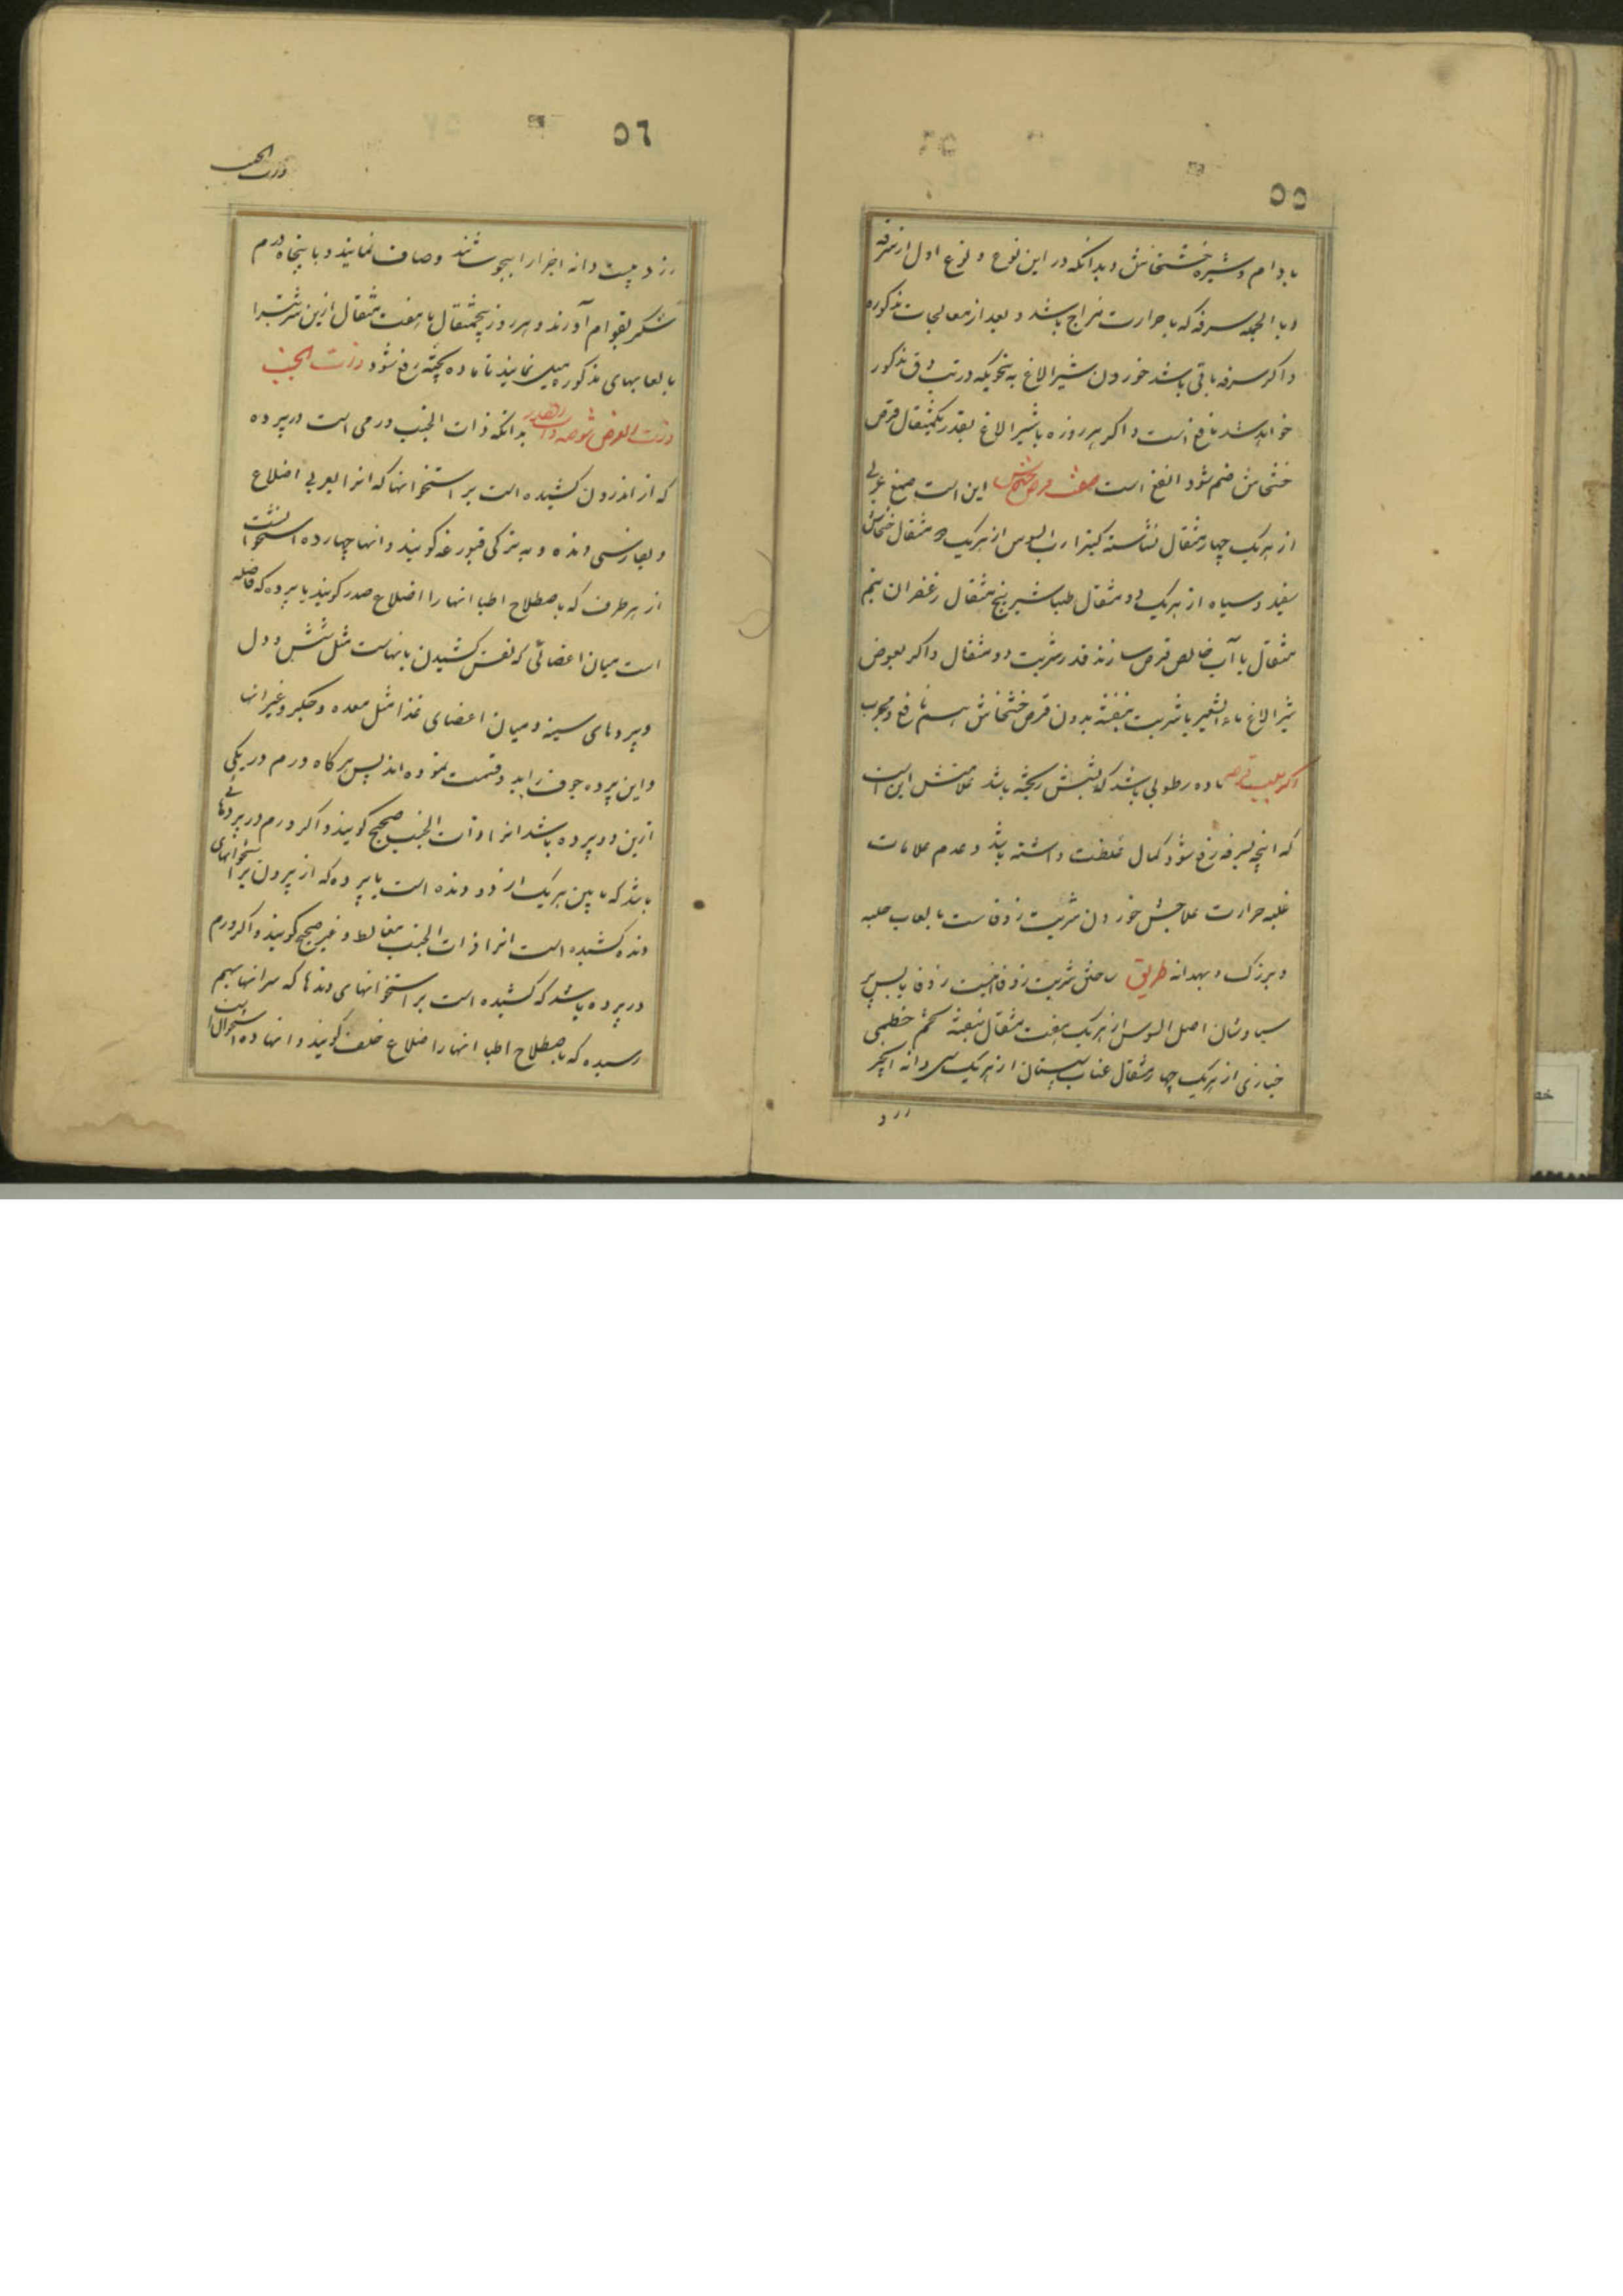 ٥٥
بادام و شیره خشخاش و بدانکه در این نوع و نوع اول از سرفه
و بالجمله سرفه که با حرارت مزاج باشد و بعد از معالجات مذکوره
و اکر سرفه باقی باشد خوردن شیر الاغ به نحویکه در تب دق مذکور
خواهد شد نافع است و اکر هر روزه با شیر الاغ بقدر یکمثقال قرص
خشخاش ضم شود انفع است صفت قرص خشخاش این است صمغ عربی
از هریک چهار مثقال نشاسته کتیرا رب السوس از هریک دو مثقال خشخاش
سفید و سیاه از هریک دو مثقال طباشیر پنج مثقال زعفران نیم
مثقال با آب خالص قرص سازند قدر شربت دو مثقال و اکر بعوض
شیر الاغ ماء الشعیر با شربت بنفشه بدون قرص خشخاش هم نافع و مجرب
و اکر بسبب سرفه ماده رطوبی باشد که بشش ریخته باشد علامتش این است
که انچه بسرفه دفع شود کمال غلظت داشته باشد و عدم علامات
غلبه حرارت علاجش خوردن شربت زوفاست با لعاب حلبه
و بزرک و بهدانه طریق ساختن شربت زوفا اینست زوفا یابس پر
سیاوشان اصل السوس از هریک هفت مثقال بنفشه تخم خطمی
خبازی از هریک چهار مثقال عناب سپستان از هریک سی دانه انجیر
زرد
٥٦
ذات الجنب
زرد بیست دانه اجزا را بجوشانند و صاف نمایند و با پنجاه درم
شکر بقوام آورند و هر روز پنجمثقال یا هفت مثقال ازین شربت را
با لعابهای مذکوره میل نمایند تا ماده پخته دفع شود ذات الجنب
ذات العرض شوصه ذات الصدر بدانکه ذات الجنب ورمی است در پرده
که از اندرون کشیده است بر استخوانها که انرا بعربی اضلاع
و بفارسی دنده و به ترکی قبورغه کویند و انها چهارده استخوانست
از هر طرف که باصطلاح اطبا انها را اضلاع صدر کویند یا پرده که فاصله
است میان اعضائی که نفس کشیدن بانهاست مثل شش و دل
و پردهای سینه و میان اعضای غذا مثل معده و جکر و غیر انها
و این پرده جوف را بدو قسمت نموده اند پس هرکاه ورم در یکی
ازین دو پرده باشد انرا ذات الجنب صحیح کویند و اکر ورم در پردهائی
باشد که ما بین هریک از دو دنده است یا پرده که از بیرون بر استخوانهای
دنده کشیده است انرا ذات الجنب مغالط و غیر صحیح کویند و اکر ورم
در پرده باشد که کشیده است بر استخوانهای دندها که سر انها بهم
رسیده که باصطلاح اطبا انها را اضلاع خلف کویند و انها ده استخوان است